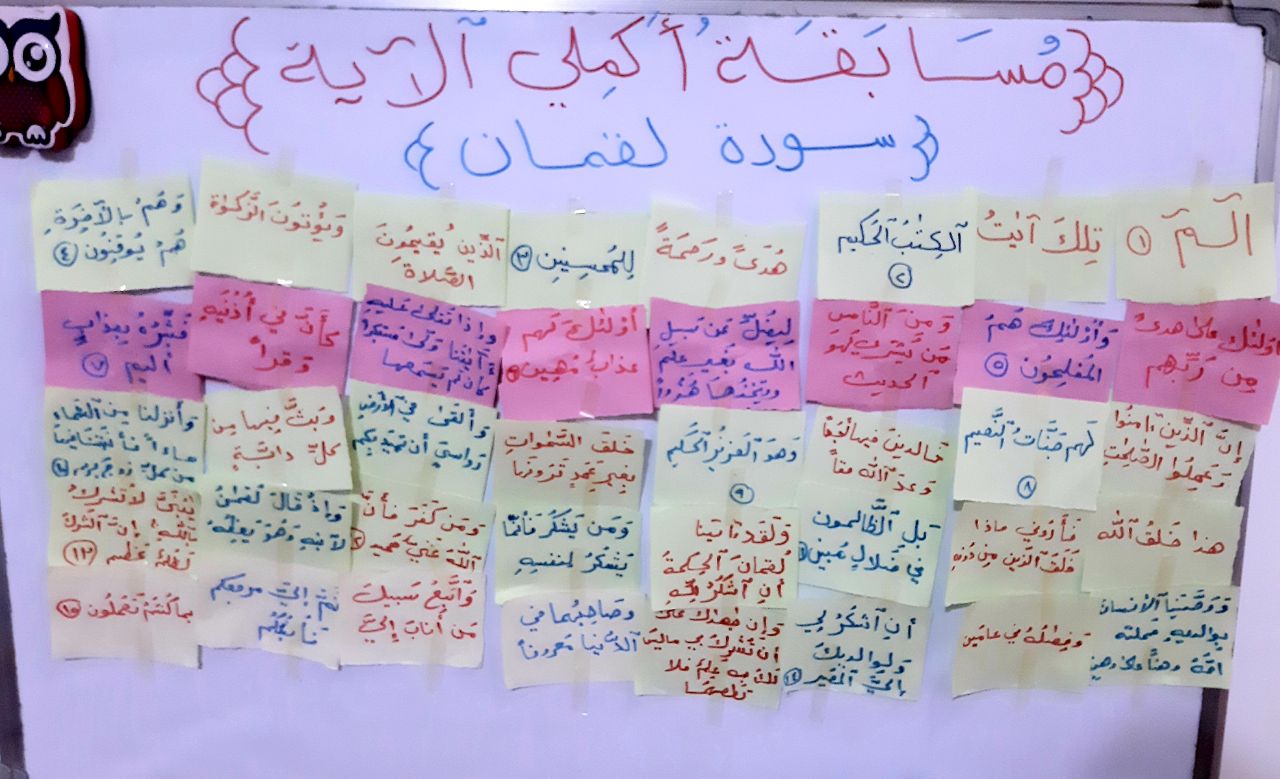 مُسَابَقَةُ أَكْمِلي ٱلآية
سورة لقمان
الٓمٓ ١
تِلكَ آيَٰتُ
ٱلكِتَٰبِ ٱلحَكِيم
٢
هُدًى ورَحمَةً
لِلمُحسِنِين ٣
ٱلَّذِين يُقِيمُونَ
الصَّلاة
وَيُؤتُونَ الزَّكَوٰة
وَهُم بِالآخِرَةِ
هُم يُوقِنُون ٤
أولئك على هدى
مِن رَبِّهِم
وَأُوْلَئِكَ هُمُ
المُفلِحُون ٥
وَمِنَ النَّاسِ
مَن يَشتَرِي لَهوَ
الحديث
لِيُضِلَّ عَن سَبِيلِ
الله بغير علم
ويتخذها هُزُوًا
أوْلئكَ لَهم
عَذَابٌ مُهِين
وإذا تتلى عليه
ءَايَٰتُنَا وَلَّى مُستَكبِرًا
كأن لم يَسمَعها
كأَنَّ في أُذُنَيهِ
وَقراً
فَبَشِّرهُ بِعَذَابٍ
أليم ٧
إنَّ ٱلَّذِينَ ءَامَنُوا
وَعَمِلُوا الصَّٰلِحَٰتِ
لَهم جَنَّاتُ النَّعِيم
٨
خَالدينَ فيها
وَعدَ ٱلله حقاً
وَهوَ العَزِيزُ الحَكيم
٩
خَلَقَ السَّمَٰوَاتِ
بِغيرِ عَمَدٍ تَرَونَها
وَألقَى في الأَرضِ
رَوَاسِيَ أن تَمِيدَ بِكُم
وبَثَّ فِيها مِن
كلِّ دابَّةٍ
وَأنزلنا مِنَ السَّماءِ
ماءً فأنبَتنَا فيها
من كلِّ زوجٍ كريم
هذا خَلقُ ٱلله
فَأَرُوني ماذا
خَلَقَ الَّذِينَ مِن دُونِهِ
بَلِ ٱلظَّالِمُون
في ضَلَالٍ مُبين
وَلَقَد ءَاتَينَا
لُقمَانَ الحِكمةَ
أَنِ ٱشكُر لِلَّهِ
وَمَن يَشكُر فَإنَّمَا
يَشكُرُ لِنَفسِهِ
وَمَن كَفَرَ فَأنَّ
ٱللَّهَ غَنِيٌّ حَمِيد
وَإِذ قَالَ لُقمَٰنُ
لابنِهِ وَهُوَ يَعِظُهُ
يَٰبُنَيَّ لا تُشرِك
بٱللهِ إنَّ الشِّركَ
لَظُلمٌ عَظِيم ١٣
وَوَصَّينَا ٱلإنسانَ
بِوالديهِ حملته
أمّهُ وهناً على وهنٍ
وَفِصَٰلُهُ في عامَين
أنِ ٱشكُر لِي
ولِوالديكَ
إليَّ المَصِير ١٤
وَإن جَٰهَدَاكَ على
أن تُشرِكَ بي ما ليسَ
لكَ به عِلم فلا
تُطِعهُمَا
وصَاحِبهُما في
الدُّنيا مَعرُوفاً
وَٱتَّبِع سَبِيلَ
مَن أنابَ إِلَيَّ
ثُمَّ إليَّ مرجِعُكم
فَأُنَبِّئُكُم
بما كُنتُم تَعمَلُون ١٥